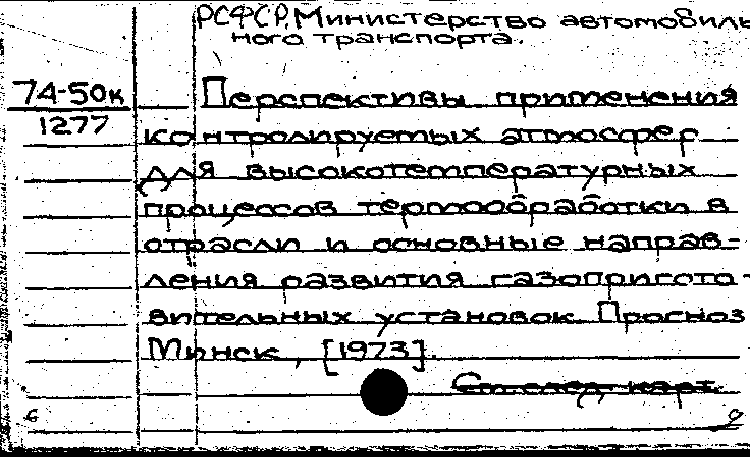 РСФСР. Министерство автомобиль
ного транспорта.
74-50к
1277
Перспективы применения
контролируемых атмосфер
для высокотемпературных
процессов термообработки в
отрасли и основные направ-
ления развития газопригото-
вительных установок. Прогноз
Минск, [1973].
См. след. карт.